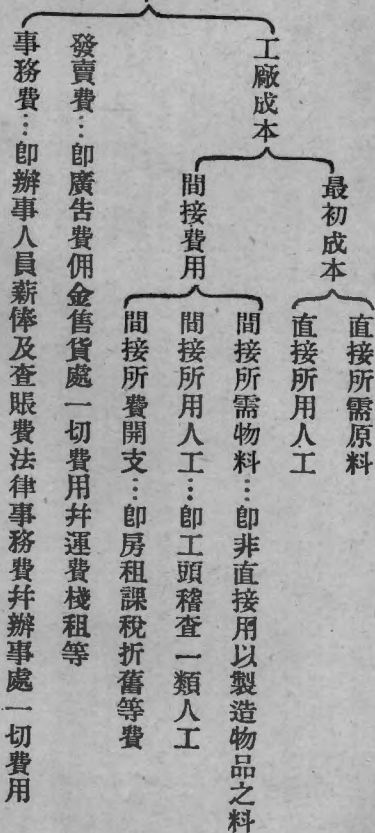 工廠成本
最初成本
直接所需原料
直接所用人工
間接費用
間接所需物料…卽非直接用以製造物品之料
間接所用人工…卽工頭稽查一類人工
間接所費開支…卽房租課稅折舊等費
發賣費…卽廣告費佣金售貨處一切費用幷運費棧租等
事務費…卽辦事人員薪俸及查賬費法律事務費幷辦事處一切費用